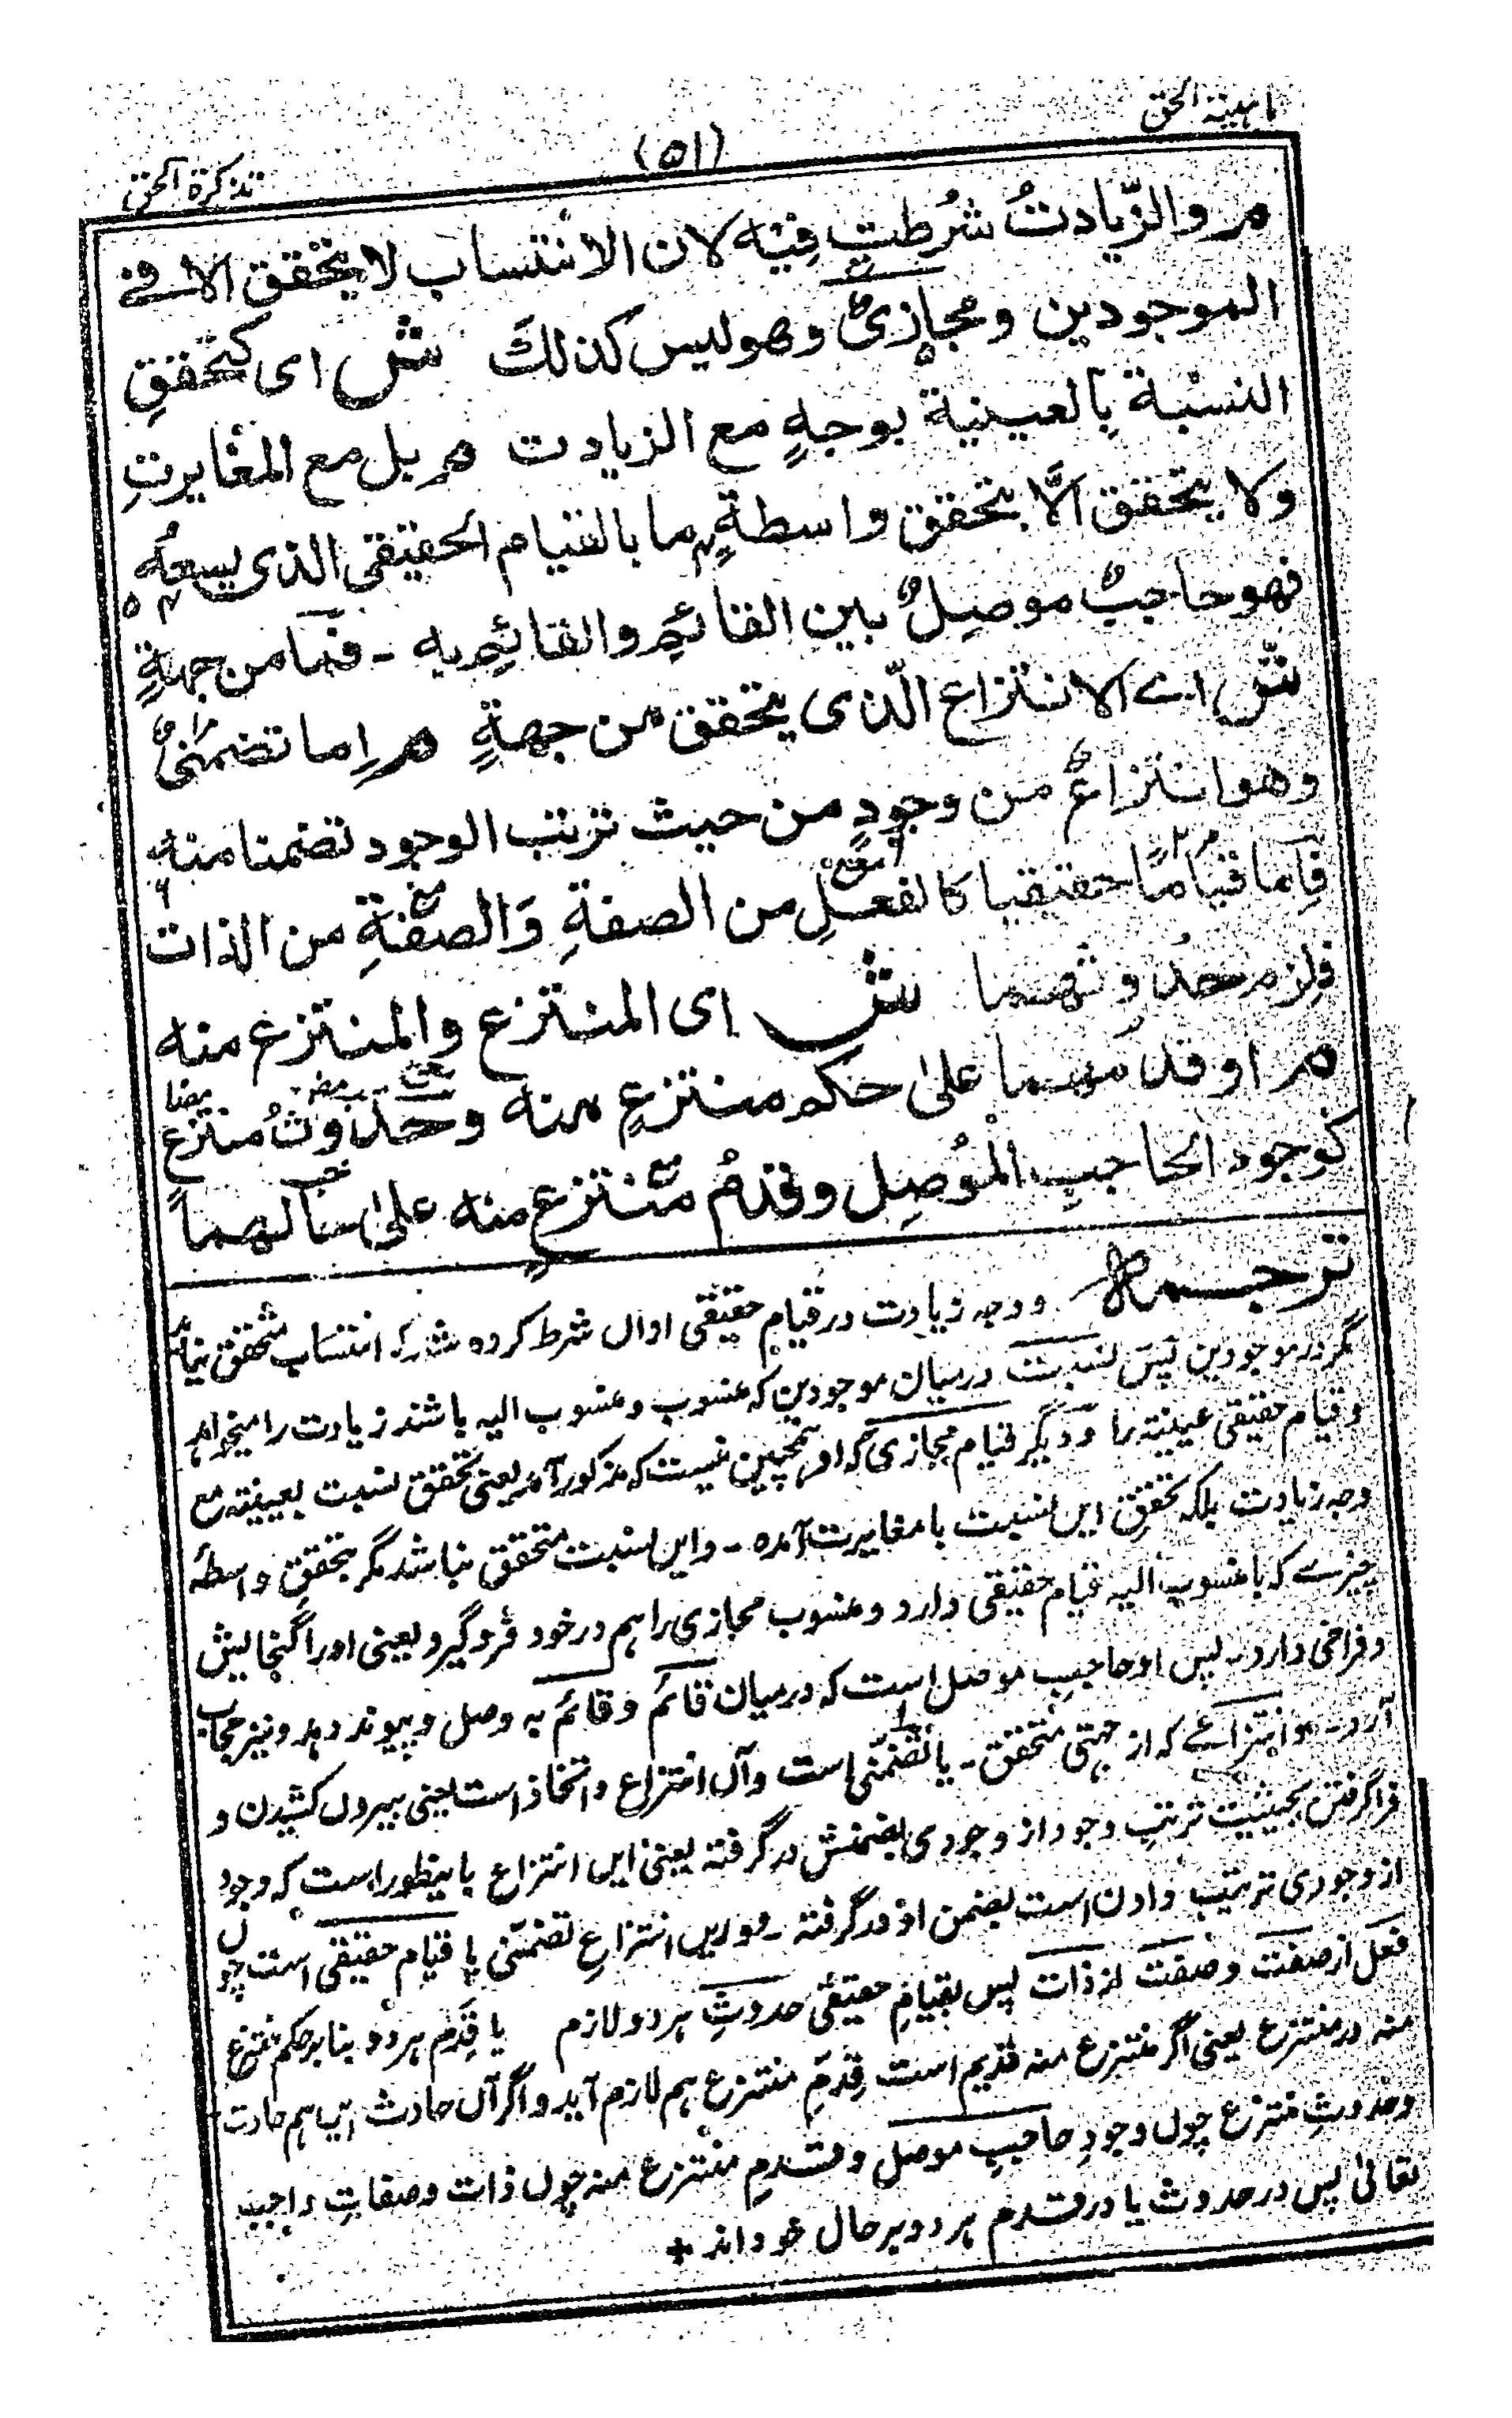 ماہیتہ الحق
(۵۱)
تذکرۃ الحق
م والزّیادتُ شرُطتِ فیْه لان الانتساب لا یتحقق الا فے
الموجودین ومجازیٌ وهو لیس کذلكَ ش ای کتحققِ
النسبة بالعینیة بوجهٍ مع الزیادت م بل مع المغایرتِ
ولا یتحقق الّا بتحقق واسطةٍ ما بالقیام الحقیقی الذی یسعهٗ
فهو حاجبٌ موصلٌ بین القائم والقائم به ۔ فما من جهةٍ
ش اے الانتزاع الّذی یتحقق من جهةٍ م اِما تضمنیٌ
وهو انتزاعٌ من وجودٍ من حیث ترتب الوجود تضمنا منه
فاِما قیامًا حقیقیا کالفعلِ من الصفةِ وَالصفةِ من الذات
فلزم حدوثهما ش ای المنتزع والمنتزع منه
م او قدمهما علیٰ حکم منتزعٍ منه وحدوثُ منتزع
کوجود الحاجبِ المُوصِل وقدمُ منتزعٍ منه علیٰ حالهما
ترجمه ووجہ زیادت در قیامِ حقیقی اوّل شرط کردہ شد کہ انتساب متحقق نیاید
مگر در موجودین پس نسبت درمیان موجودین کہ منسوب و منسوب الیہ باشند زیادت را میخواہد
و قیام حقیقی عینیتہ را و دیگر قیام مجازی کہ او ہمچنین نیست کہ مذکور آمد یعنی تحقق نسبت بعینیتہ مع
وجہ زیادت بلکہ تحققِ این نسبت با مغایرت آمدہ ۔ و این نسبت متحقق نباشد مگر بتحققِ واسطۂ
چیزے کہ با منسوب الیہ قیام حقیقی دارد و منسوب مجازی را ہم در خود فروگیرد یعنی او را گنجایش
و فراخی دارد ۔ پس او حاجبِ موصل است کہ درمیان قائم و قائم بہ وصل و پیوند دہد و نیز حجاب
آرد ۔ و انتزاعے کہ از جہتی متحقق ۔ یا تضمنّی است و آن انتزاع و اتخاذ است یعنی بیرون کشیدن و
فراگرفتن بحیثیت ترتبِ وجود از وجودی بضمنش در گرفتہ یعنی این انتزاع باینطور است کہ وجود
از وجودی ترتیب دادن است بضمن او در گرفتہ ۔ و درین انتزاعِ تضمنّی یا قیام حقیقی است چون
فعل از صفت و صفت از ذات پس بقیامِ حقیقی حدوثِ ہر دو لازم یا قِدَم ہر دو بنا بر حکم منتزع
منہ در منتزع یعنی اگر منتزع منہ قدیم است قِدَمِ منتزع ہم لازم آید و اگر آن حادث این ہم حادث
و حدوثِ منتزع چون وجودِ حاجبِ موصل و قدمِ منتزع منہ چون ذات و صفاتِ واجب
تعالیٰ پس در حدوث یا در قدم ہر دو بر حال خود اند +